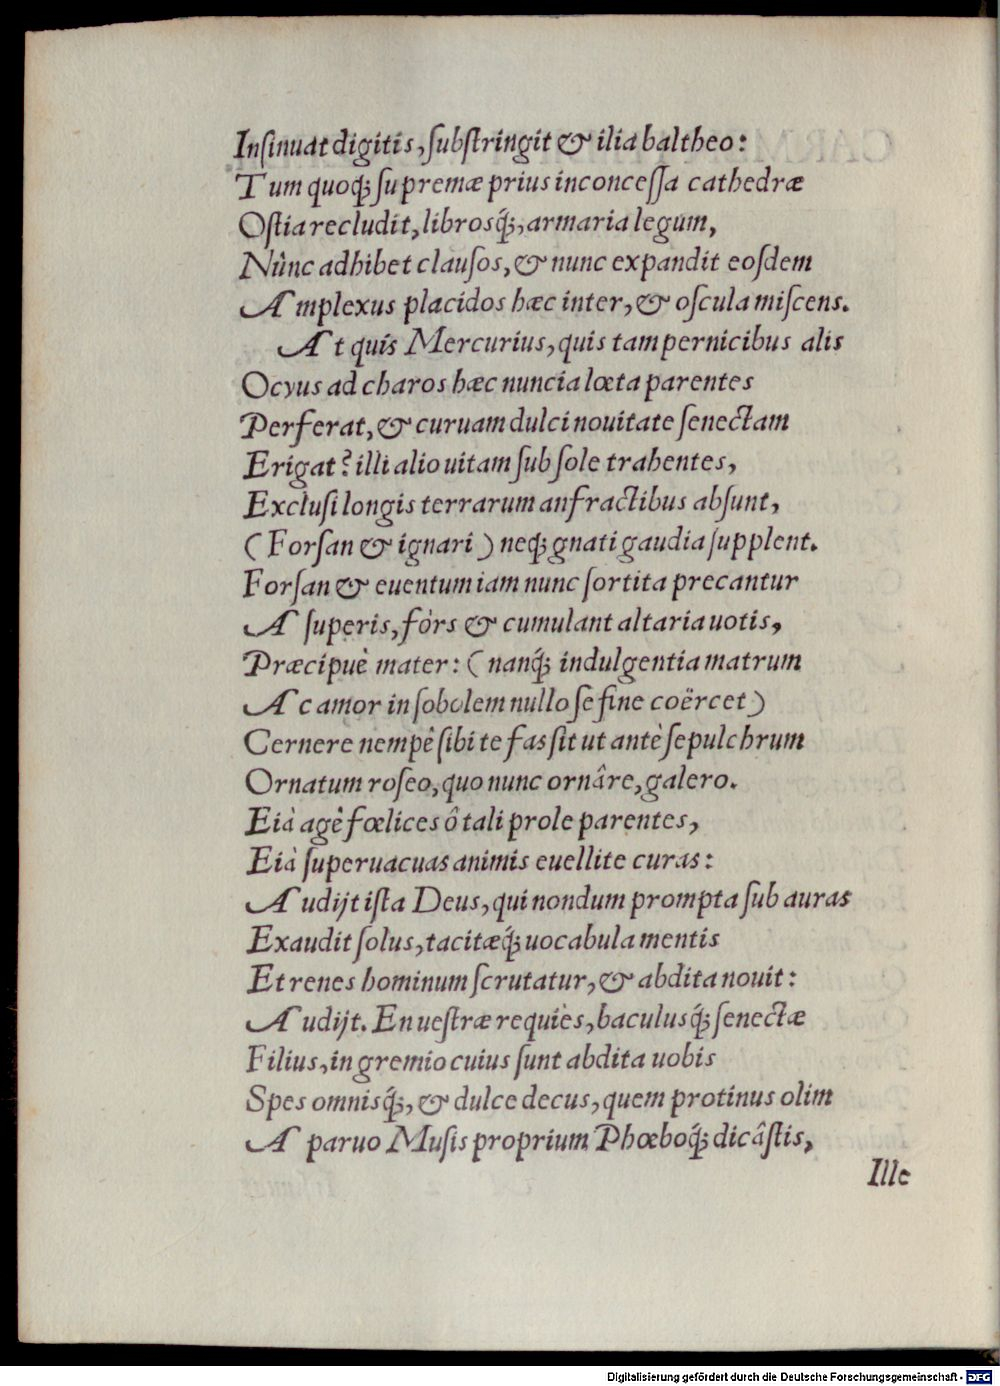 Inſinuat digitis, ſubſtringit & ilia baltheo:
Tum quoq; ſupremæ prius inconceſſa cathedræ
Oſtia recludit, librosq́;, armaria legum,
Nûnc adhibet clauſos, & nunc expandit eoſdem
Amplexus placidos hæc inter, & oſcula miſcens.
At quis Mercurius, quis tam pernicibus alis
Ocyus ad charos hæc nuncia lœta parentes
Perferat, & curuam dulci nouitate ſenectam
Erigat? illi alio uitam ſub ſole trahentes,
Excluſi longis terrarum anfractibus abſunt,
(Forſan & ignari) neq; gnati gaudia ſupplent.
Forſan & euentum iam nunc ſortita precantur
A ſuperis, fòrs & cumulant altaria uotis,
Præcipuè mater: (nanq́; indulgentia matrum
Ac amor in ſobolem nullo ſe fine coërcet)
Cernere nempè ſibi te fas ſit ut antè ſepulchrum
Ornatum roſeo, quo nunc ornâre, galero.
Eià agè fœlices ô tali prole parentes,
Eià ſuperuacuas animis euellite curas:
Audijt iſta Deus, qui nondum prompta ſub auras
Exaudit ſolus, tacitæq́; uocabula mentis
Et renes hominum ſcrutatur, & abdita nouit:
Audijt. En ueſtræ requiès, baculusq́; ſenectæ
Filius, in gremio cuius ſunt abdita uobis
Spes omnisq́;, & dulce decus, quem protinus olim
A paruo Muſis proprium Phœboq́; dicâſtis,
Ille
Digitalisierung gefördert durch die Deutsche Forschungsgemeinschaft - DFG